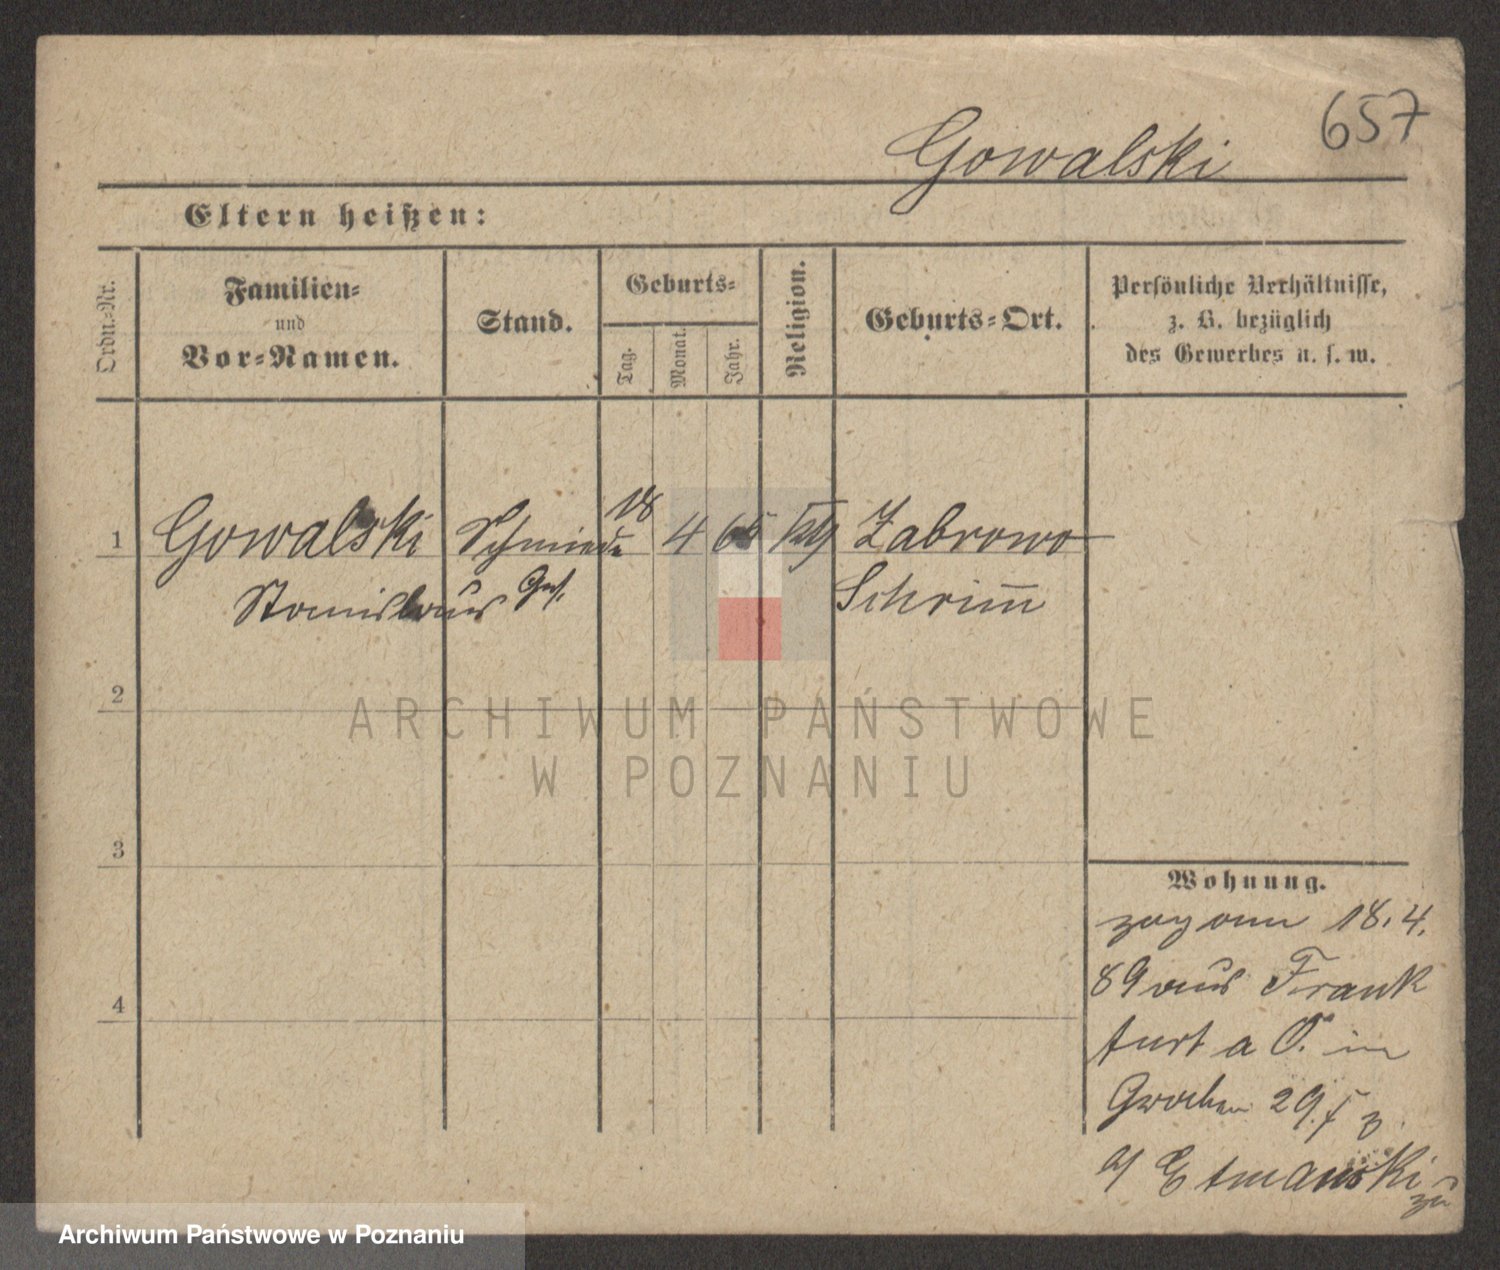 657
Gowalski
Eltern heißen:
Ordn.-Nr.
Familien-
und
Vor-Namen.
Stand.
Geburts-
Tag.
Monat.
Jahr.
Religion.
Geburts-Ort.
Persönliche Verhältnisse,
z. B. bezüglich
des Gewerbes u. s. w.
1
Gowalski
Schmiede
18
4
Zabrowo
Stanislaus
Ges.
Schrim̄
2
ARCHIWUM PAŃSTWOWE
W POZNANIU
3
Wohnung.
zog am 18. 4.
89 aus Frank
furt a O. in
4
Graben 29.
Etmanski
zu
Archiwum Państwowe w Poznaniu